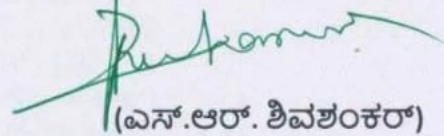 (ಎಸ್.ಆರ್. ಶಿವಶಂಕರ್)